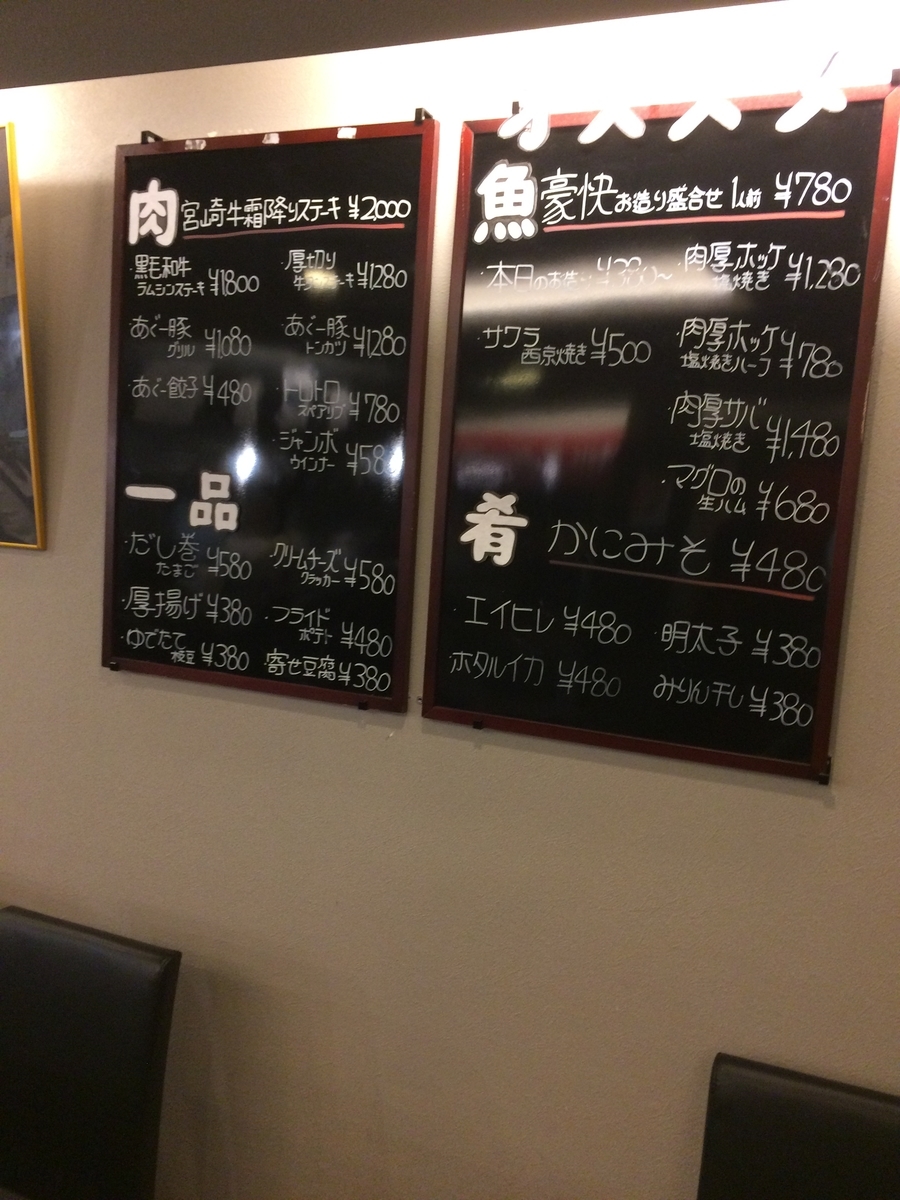 肉 宮崎牛霜降りステーキ ¥2000
・黒毛和牛
ラムシンステーキ ¥1,800
・厚切り
ステーキ ¥1,280
・あぐー豚
グリル ¥1,080
・あぐー豚
トンカツ ¥1,280
・あぐー餃子 ¥480
・トロトロ
スペアリブ ¥780
・ジャンボ
ウインナー ¥580
一品
・だし巻
たまご ¥580
・クリームチーズ
クラッカー ¥580
・厚揚げ ¥380
・フライド
ポテト ¥480
・ゆでたて
枝豆 ¥380
・寄せ豆腐 ¥380
オススメ
魚 豪快お造り盛合せ 1人前 ¥780
・本日のお造り
・肉厚ホッケ
塩焼き ¥1,280
・サワラ
西京焼き ¥500
・肉厚ホッケ
塩焼きハーフ ¥780
・肉厚サバ
塩焼き ¥1,480
・マグロの
生ハム ¥680
肴 かにみそ ¥480
・エイヒレ ¥480
・明太子 ¥380
・ホタルイカ ¥480
・みりん干し ¥380